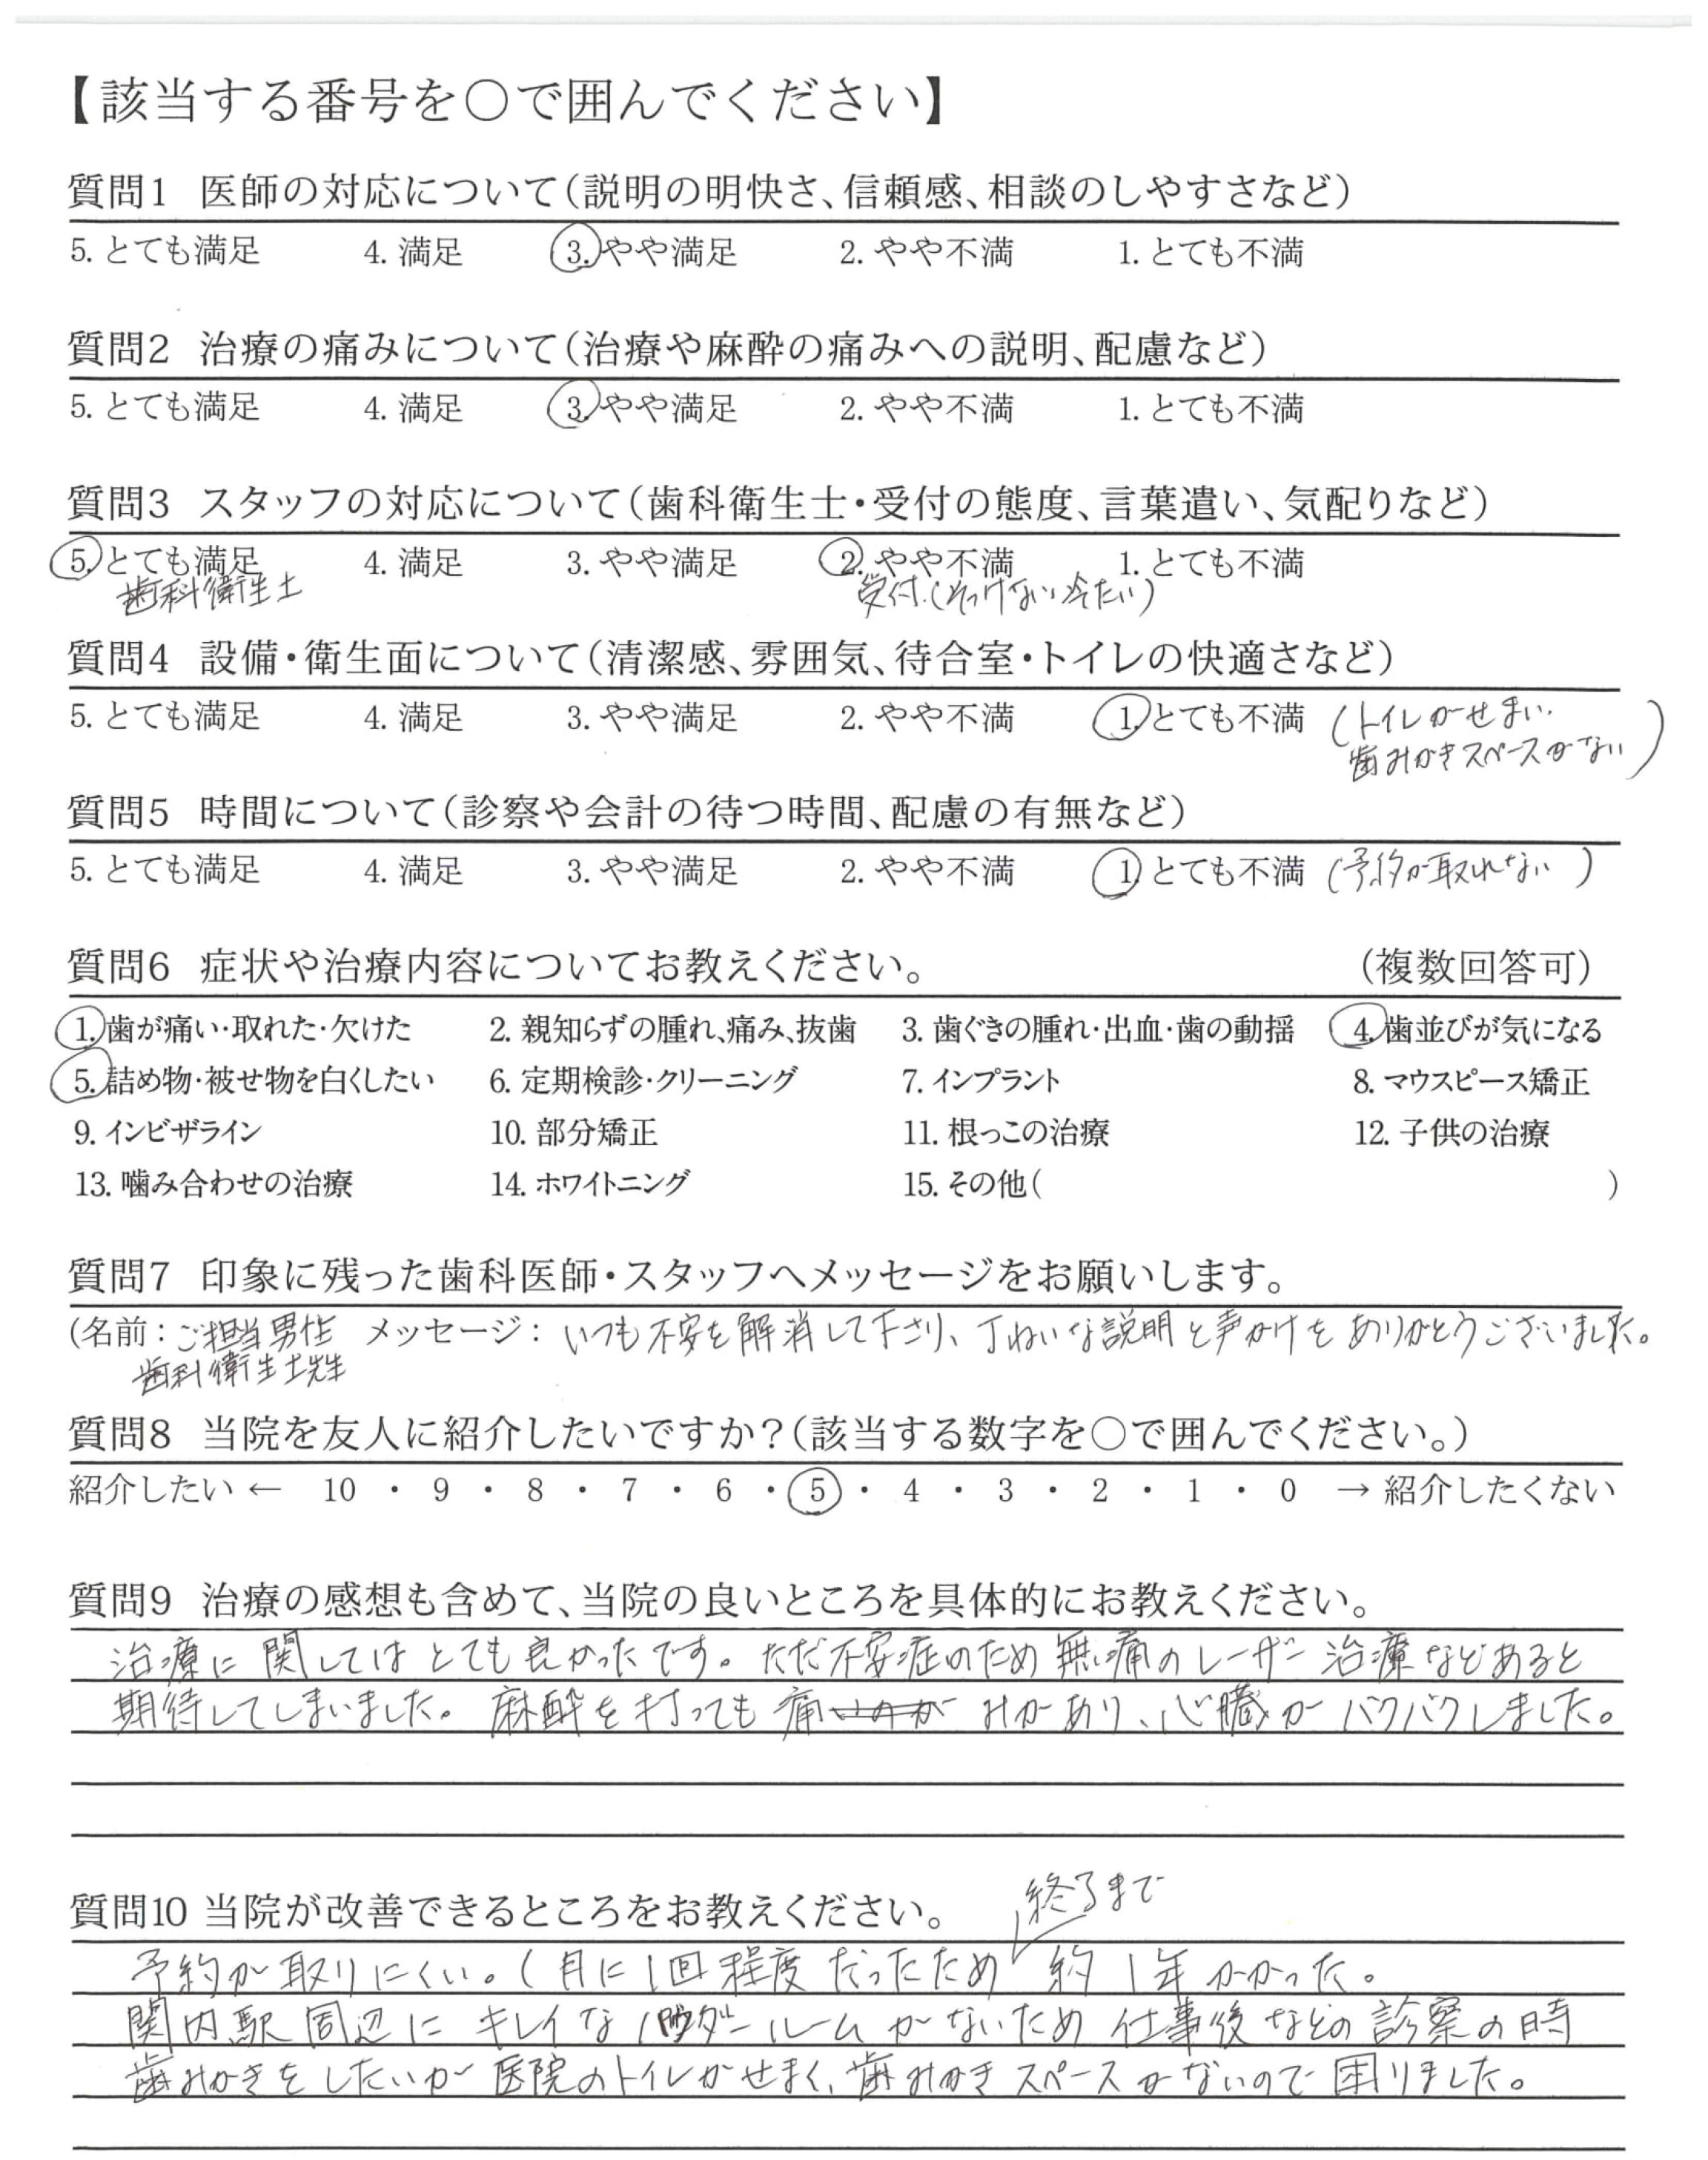 【該当する番号を○で囲んでください】
質問1 医師の対応について(説明の明快さ、信頼感、相談のしやすさなど)
5. とても満足 4. 満足 3. やや満足 2. やや不満 1. とても不満
質問2 治療の痛みについて(治療や麻酔の痛みへの説明、配慮など)
5. とても満足 4. 満足 3. やや満足 2. やや不満 1. とても不満
質問3 スタッフの対応について(歯科衛生士・受付の態度、言葉遣い、気配りなど)
5. とても満足 4. 満足 3. やや満足 2. やや不満 1. とても不満
歯科衛生士 受付.(そっけない冷たい)
質問4 設備・衛生面について(清潔感、雰囲気、待合室・トイレの快適さなど)
5. とても満足 4. 満足 3. やや満足 2. やや不満 1. とても不満 (トイレがせまい.
歯みがきスペースがない)
質問5 時間について(診察や会計の待つ時間、配慮の有無など)
5. とても満足 4. 満足 3. やや満足 2. やや不満 1. とても不満 (予約が取れない)
質問6 症状や治療内容についてお教えください。 (複数回答可)
1. 歯が痛い・取れた・欠けた 2. 親知らずの腫れ、痛み、抜歯 3. 歯ぐきの腫れ・出血・歯の動揺 4. 歯並びが気になる
5. 詰め物・被せ物を白くしたい 6. 定期検診・クリーニング 7. インプラント 8. マウスピース矯正
9. インビザライン 10. 部分矯正 11. 根っこの治療 12. 子供の治療
13. 噛み合わせの治療 14. ホワイトニング 15. その他( )
質問7 印象に残った歯科医師・スタッフへメッセージをお願いします。
(名前:ご担当男性 メッセージ:いつも不安を解消して下さり、丁ねいな説明と声かけをありがとうございました。
歯科衛生士先生
質問8 当院を友人に紹介したいですか?(該当する数字を○で囲んでください。)
紹介したい ← 10 ・ 9 ・ 8 ・ 7 ・ 6 ・ 5 ・ 4 ・ 3 ・ 2 ・ 1 ・ 0 → 紹介したくない
質問9 治療の感想も含めて、当院の良いところを具体的にお教えください。
治療に関してはとても良かったです。ただ不安症のため無痛のレーザー治療などあると
期待してしまいました。麻酔を打っても痛みがあり、心臓がバクバクしました。
質問10 当院が改善できるところをお教えください。
終るまで
予約が取りにくい。(月に1回程度だったため 約1年かかった。
関内駅周辺にキレイなパウダールームがないため仕事後などの診察の時
歯みがきをしたいが医院のトイレがせまく、歯みがきスペースがないので困りました。